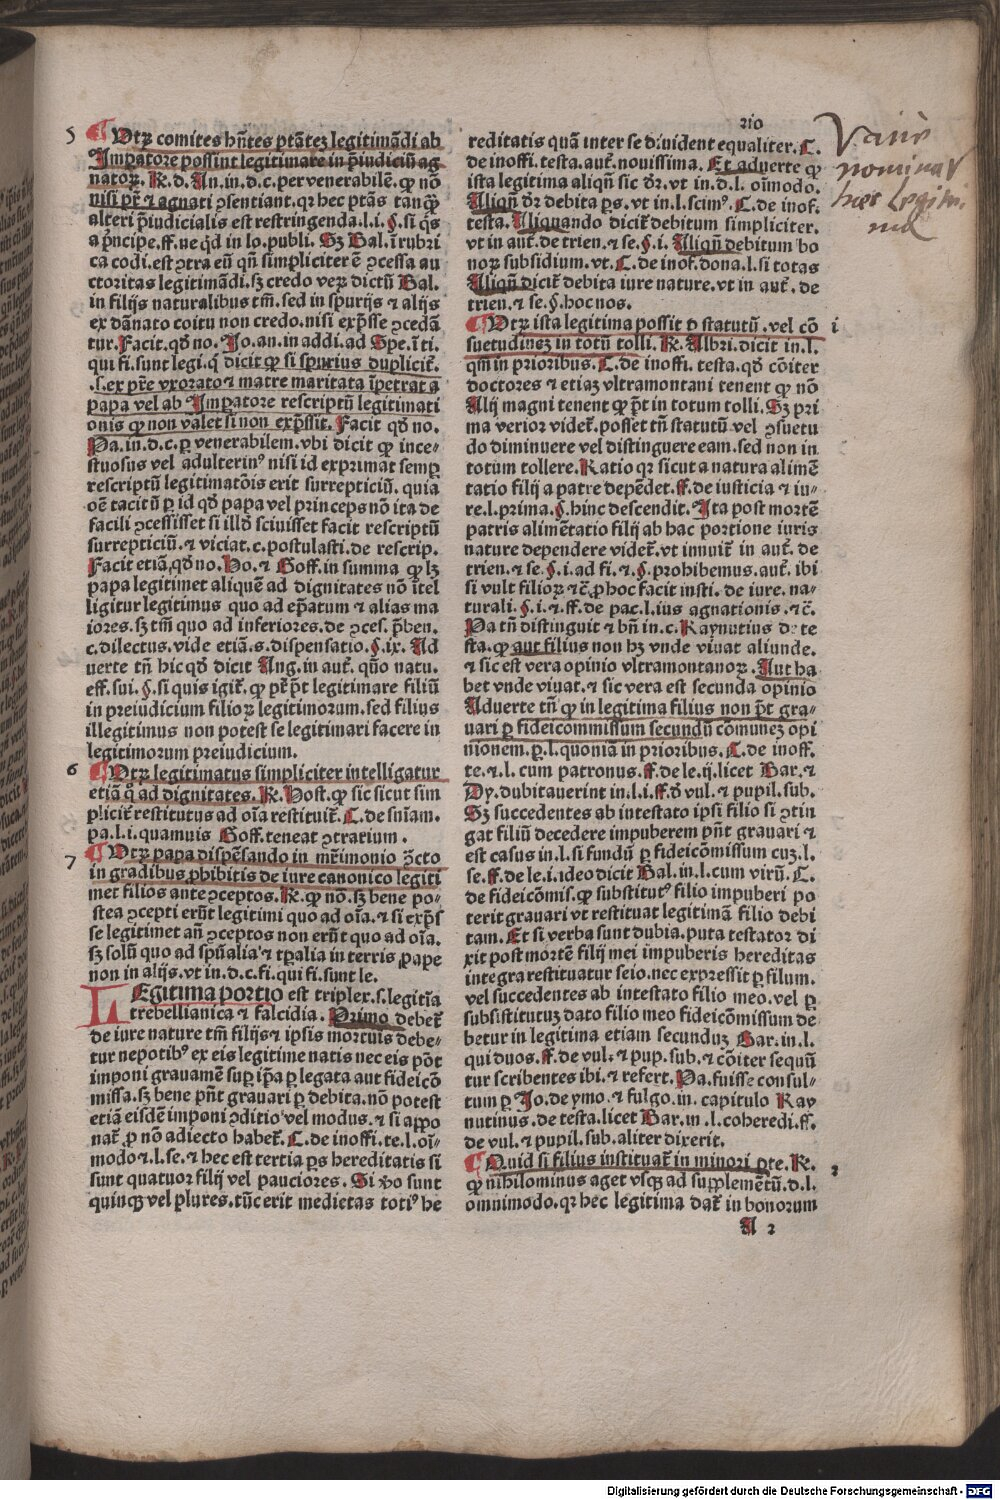 210
5
¶ Vtꝝ comites hñtes ptãteꝫ legitimãdi ab
Imperatore possint legitimare in p̃iudiciũ ag
natoꝝ. R̃. d. An. in. d. c. per venerabilẽ. ꝙ nõ
nisi pr̃ ⁊ agnati ꝯsentiant. qꝛ hec ptãs tanꝙ̃
alteri p̃iudicialis est restringenda. l. i. §. si q̃s
a p̃ncipe. ff. ne qͥd in lo. publi. Sꝫ Bal. ĩ rubri
ca codi. est ꝯtra eũ qñ simpliciter ẽ ꝯcessa au
ctoritas legitimãdi. sꝫ credo veꝝ dictũ Bal.
in filijs naturalibus tm̃. sed in spurijs ⁊ alijs
ex dãnato coitu non credo. nisi exp̃sse ꝯcedã
tur. Facit. qð no. Jo. an. in addi. ad Spe. ĩ ti.
qui fi. sunt legi. q̃ dicit ꝙ si spurius duplicit̃.
.s. ex pr̃e vxorato ⁊ matre maritata ĩpetrat a
papa vel ab Imperatore rescriptũ legitimati
onis ꝙ non valet si non exp̃ssit. Facit qð no.
Pa. in. d. c. ꝑ venerabilem. vbi dicit ꝙ ince-
stuosus vel adulterinꝰ nisi id exprimat semꝑ
rescriptũ legitimatõis erit surrepticiũ. quia
oẽ tacitũ ꝑ id qð papa vel princeps nõ ita de
facili ꝯcessisset si illð sciuisset facit rescriptũ
surrepticiũ. ⁊ viciat. c. postulasti. de rescrip.
Facit etiã. qð no. Ho. ⁊ Goff. in summa ꝙ lꝫ
papa legitimet aliquẽ ad dignitates nõ ĩtel
ligitur legitimus quo ad ep̃atum ⁊ alias ma
iores. sꝫ tm̃ quo ad inferiores. de ꝯces. p̃ben.
c. dilectus. vide etiã. s. dispensatio. §. ix. Ad
uerte tñ hic qð dicit Ang. in aut̃. qũo natu.
eff. sui. §. si quis igit̃. ꝙ pr̃ p̃t legitimare filiũ
in preiudicium filioꝝ legitimorum. sed filius
illegitimus non potest se legitimari facere in
legitimorum preiudicium.
6
¶ Vtꝝ legitimatus simpliciter intelligatur
etiã qͦ ad dignitates. R̃. Host. ꝙ sic sicut sim
plicit̃ restitutus ad oĩa restituit̃. C. de sniam.
pa. l. i. quamuis Goff. teneat ꝯtrarium.
7
¶ Vtꝝ papa dispẽsando in mr̃imonio ꝯ̃cto
in gradibus ꝓhibitis de iure canonico legiti
met filios ante ꝯceptos. R̃. ꝙ nõ. sꝫ bene po-
stea ꝯcepti erũt legitimi quo ad oĩa. ⁊ si exp̃s
se legitimet añ ꝯceptos non erũt quo ad oĩa.
sꝫ solũ quo ad spũalia ⁊ tp̃alia in terris ꝓpape
non in alijs. vt in. d. c. fi. qui fi. sunt le.
LEgitima portio est triplex. s. legitĩa
trebellianica ⁊ falcidia. Primo debet̃
de iure nature tm̃ filijs ⁊ ipsis mortuis debe-
tur nepotibꝰ ex eis legitime natis nec eis põt
imponi grauamẽ suꝑ ip̃a ꝑ legata aut fideicõ
missa. sꝫ bene pñt grauari ꝑ debita. nõ potest
etiã eisdẽ imponi ꝯditio vel modus. ⁊ si appo
nat̃ ꝓ nõ adiecto habet̃. C. de inoffi. te. l. oĩ-
modo ⁊. l. se. ⁊ hec est tertia ꝑs hereditatis si
sunt quatuor filij vel pauciores. Si vo sunt
quinqꝫ vel plures. tũc erit medietas totiꝰ he
reditatis quã inter se diuident equaliter. C.
de inoffi. testa. aut̃. nouissima. Et aduerte ꝙ
ista legitima aliqñ sic dr̃. vt in. d. l. oĩmodo.
Aliqñ dr̃ debita ꝑs. vt in. l. scimꝰ. C. de inof.
testa. Aliquando dicit̃ debitum simpliciter.
vt in aut̃. de trien. ⁊ se. §. i. Aliqñ debitum bo
noꝝ subsidium. vt. C. de inof. dona. l. si totas
Aliqñ dicit̃ debita iure nature. vt in aut̃. de
trien. ⁊ se. §. hoc nos.
i
¶ Vtꝝ ista legitima possit ꝑ statutũ. vel cõ
suetudineꝫ in totũ tolli. R̃. Albri. dicit in. l.
qm̃ in prioribus. C. de inoffi. testa. qð cõiter
doctores ⁊ etiaꝫ vltramontani tenent ꝙ nõ
Alij magni tenent ꝙ p̃t in totum tolli. Sꝫ pri
ma verior videt̃. posset tñ statutũ vel ꝯsuetu
do diminuere vel distinguere eam. sed non in
totum tollere. Ratio qꝛ sicut a natura alimẽ
tatio filij a patre depẽdet. ff. de iusticia ⁊ iu-
re. l. prima. §. hinc descendit. Ita post mortẽ
patris alimẽtatio filij ab hac portione iuris
nature dependere videt̃. vt innuit̃ in aut̃. de
trien. ⁊ se. §. i. ad fi. ⁊. §. prohibemus. aut̃. ibi
si vult filioꝝ ⁊ c̃. ꝓ hoc facit insti. de iure. na-
turali. §. i. ⁊ ff. de pac. l. ius agnationis. ⁊ c̃.
Pa tñ distinguit ⁊ bñ in. c. Raynutius de te
sta. ꝙ aut filius non hꝫ vnde viuat aliunde.
⁊ sic est vera opinio vltramontanoꝝ. Aut ha
bet vnde viuat. ⁊ sic vera est secunda opinio
Aduerte tñ ꝙ in legitima filius non p̃t gra-
uari ꝑ fideicommissum secundũ comuneꝫ opi
nionem. ꝑ. l. quoniã in prioribus. C. de inoff.
te. ⁊. l. cum patronus. ff. de le. ij. licet Bar. ⁊
Dy. dubitauerint in. l. i. ff. ð vul. ⁊ pupil. sub.
Sꝫ succedentes ab intestato ipsi filio si ꝯtin
gat filiũ decedere impuberem pñt grauari ⁊
est casus in. l. si fundũ ꝑ fideicõmissum cuꝫ. l.
se. ff. de le. i. ideo dicit Bal. in. l. cum virũ. C.
de fideicõmis. ꝙ substitutꝰ filio impuberi po
terit grauari vt restituat legitimã filio debi
tam. Et si verba sunt dubia. puta testator di
xit post mortẽ filij mei impuberis hereditas
integra restituatur seio. nec expressit ꝑ filum.
vel succedentes ab intestato filio meo. vel ꝑ
subsistitutuꝫ dato filio meo fideicõmissum de-
betur in legitima etiam secunduꝫ Bar. in. l.
qui duos. ff. de vul. ⁊ pup. sub. ⁊ cõiter sequũ
tur scribentes ibi. ⁊ refert. Pa. fuisse consul-
tum ꝑ Jo. de ymo. ⁊ fulgo. in. capitulo Ray
nutinus. de testa. licet Bar. in. l. coheredi. ff.
de vul. ⁊ pupil. sub. aliter dixerit.
2
¶ Quid si filius instituat̃ in minori ꝑte. R̃.
ꝙ nihilominus aget vsqꝫ ad supplementũ. d. l.
omnimodo. qꝛ hec legitima dat̃ in bonorum
A 2
Varie
nominat
hec Legitti
ma
Digitalisierung gefördert durch die Deutsche Forschungsgemeinschaft - DFG